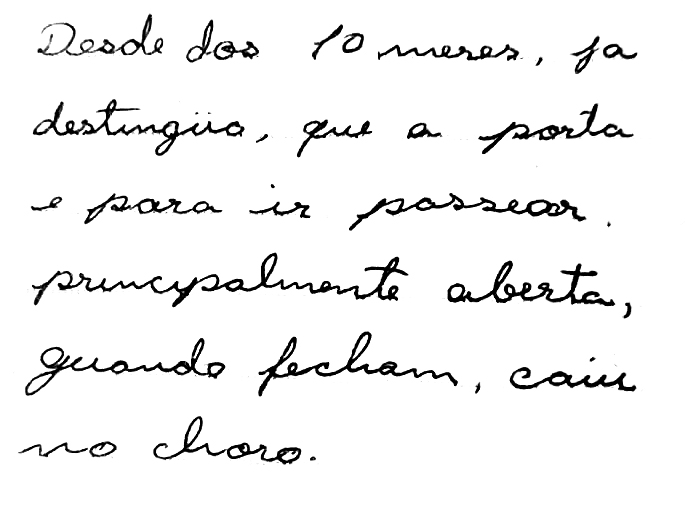 Desde dos 10 meses, ja
destingüia, que a porta
e para ir passear.
principalmente aberta,
quando fecham, caiu
no choro.